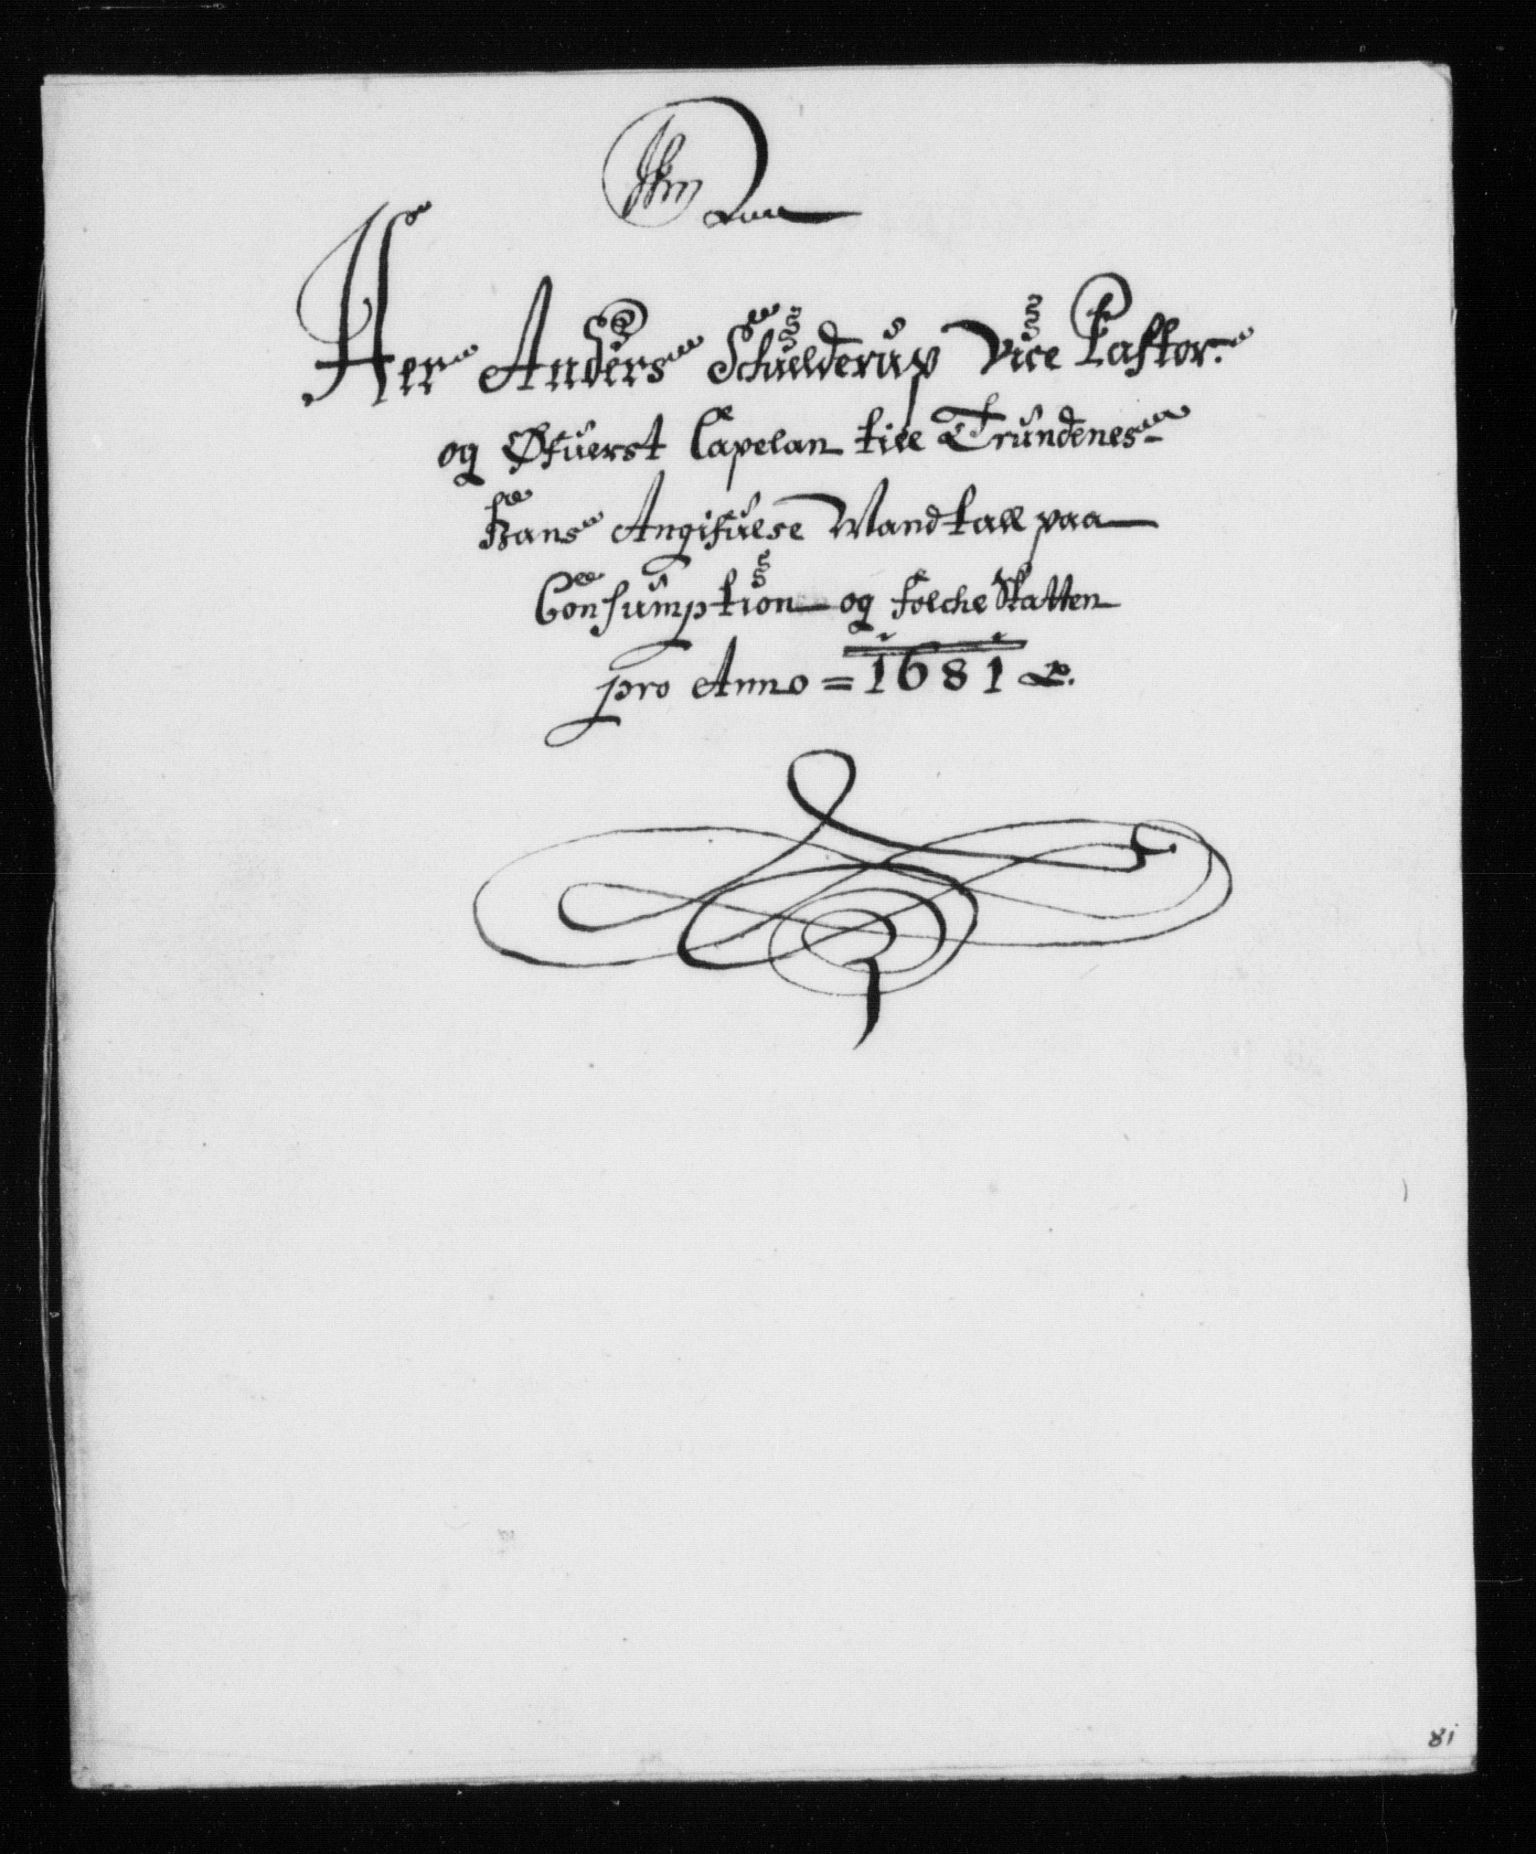 Her Anders Schielderup Vice Pastor.
og Øfuerst Capelan till Trundenes
Hans Angifuelse Mandtall paa
Consumption og folche Skatten
pro Anno = 1681
81